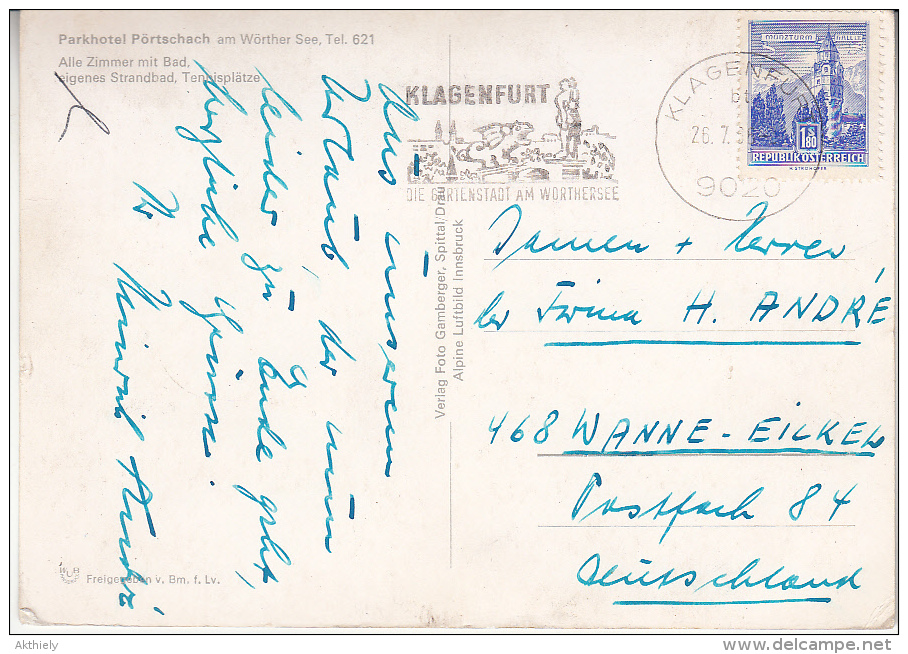 Parkhotel Pörtschach am Wörther See, Tel. 621
Alle Zimmer mit Bad,
eigenes Strandbad, Tennisplätze
Aus unserem
Urlaub, der nun
leider zu Ende geht,
herzliche Grüsse
Ihr
KLAGENFURT
DIE GARTENSTADT AM WÖRTHERSEE
KLAGENFURT
26. 7.
9020
MÜNZTURM HALL I.T.
S 1.80
REPUBLIK ÖSTERREICH
Verlag Foto Gamberger, Spittal/Drau
Alpine Luftbild Innsbruck
Damen + Herren
der Firma H. ANDRÉ
468 WANNE-EICKEL
Postfach 84
Deutschland
Freigegeben v. Bm. f. Lv.
Akthiely
delcampe.net